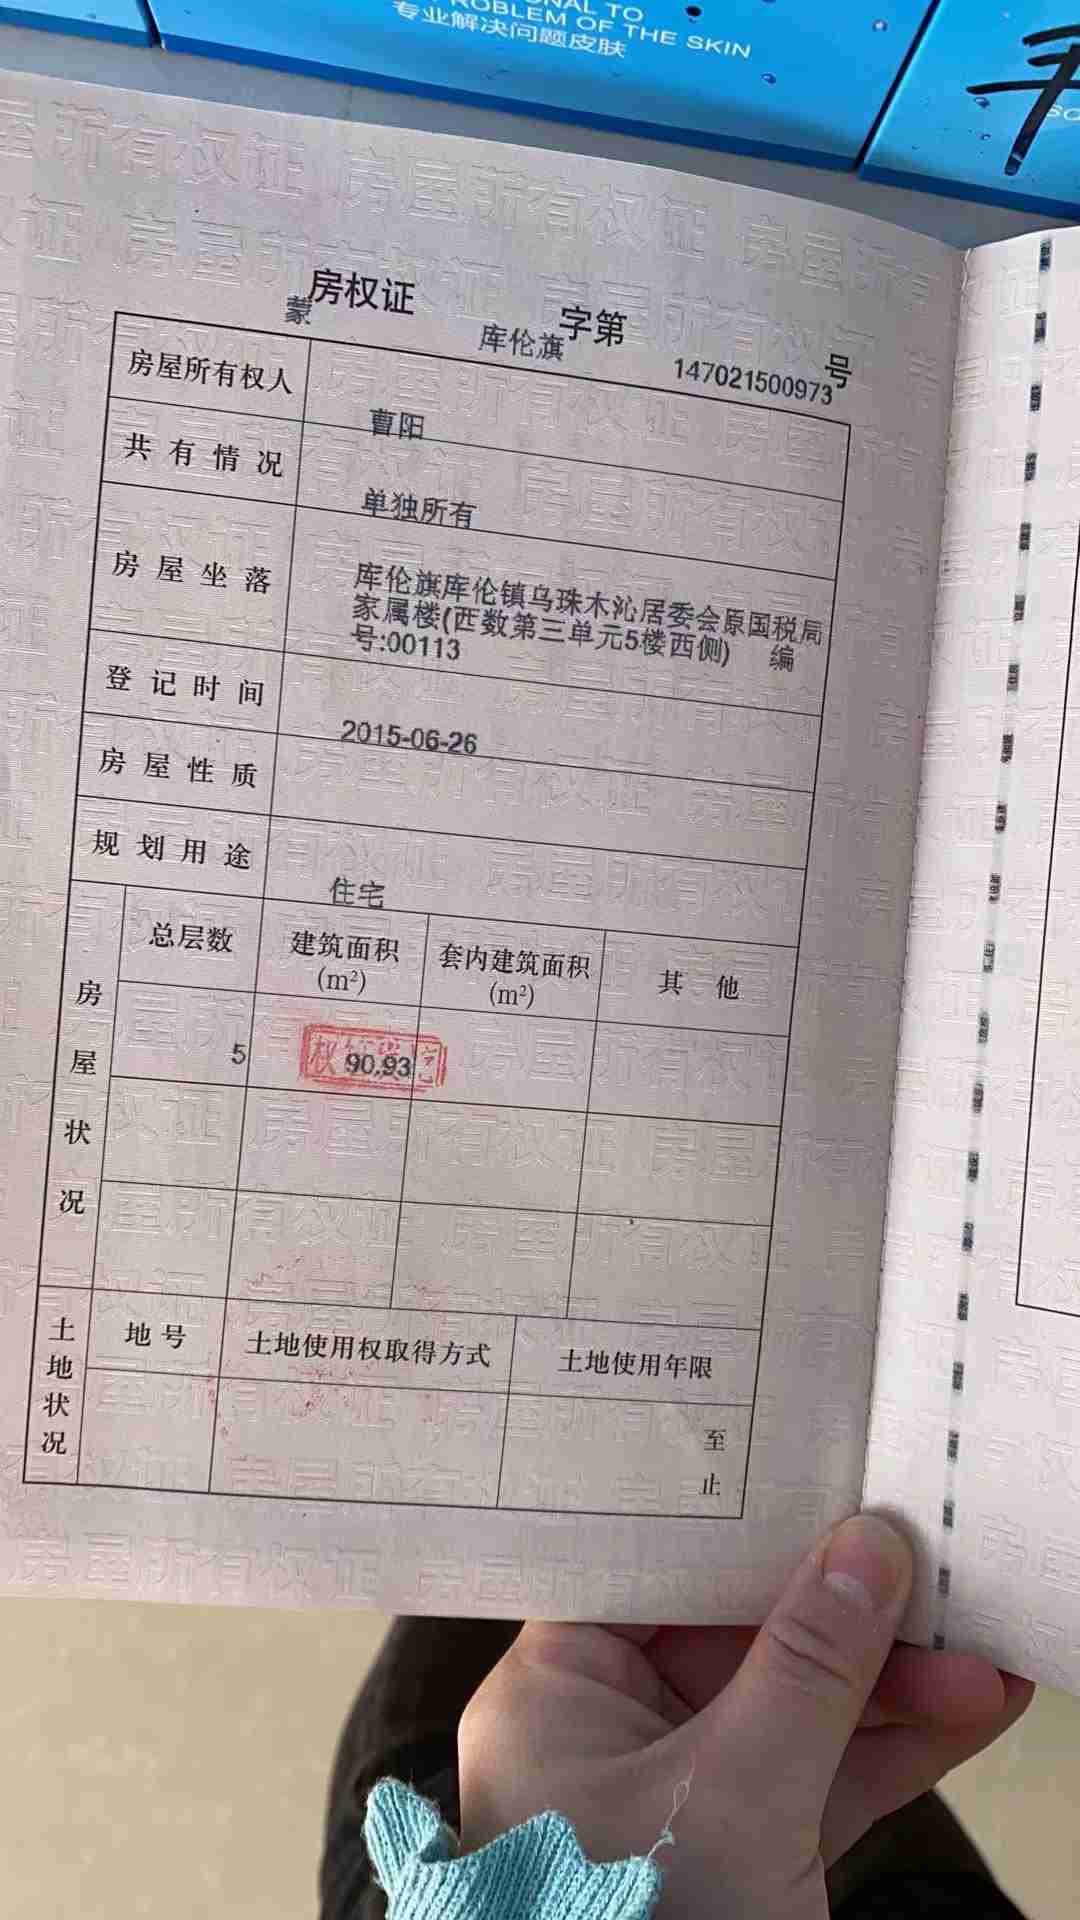 NAL TO
ROBLEM OF THE SKIN
专业解决问题皮肤
房权证
蒙
字第
库伦旗
号
147021500973
房屋所有权人
曹阳
共有情况
单独所有
房屋坐落
库伦旗库伦镇乌珠木沁居委会原国税局
家属楼(西数第三单元5楼西侧) 编
号:00113
登记时间
2015-06-26
房屋性质
规划用途
住宅
房屋状况
总层数
建筑面积
(m²)
套内建筑面积
(m²)
其他
5
90.93
土地状况
地号
土地使用权取得方式
土地使用年限
至
止